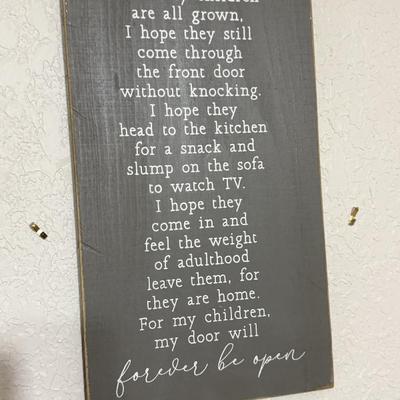 children
are all grown,
I hope they still
come through
the front door
without knocking.
I hope they
head to the kitchen
for a snack and
slump on the sofa
to watch TV.
I hope they
come in and
feel the weight
of adulthood
leave them, for
they are home.
For my children,
my door will
forever be open